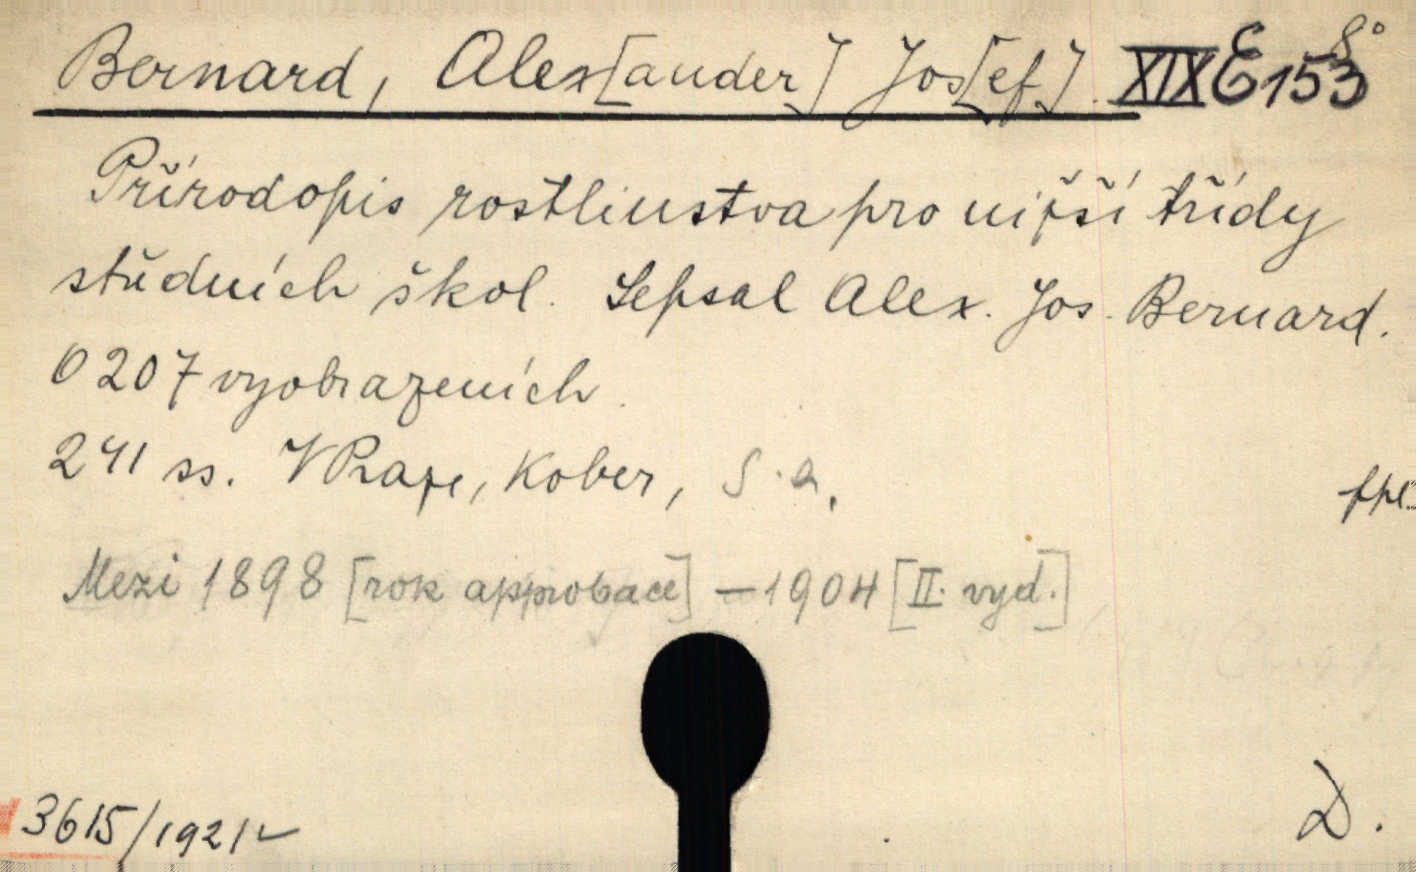 Bernard, Alex[ander] Jos[ef]. XIX E 153 8°
Přírodopis rostlinstva pro nižší třídy
středních škol. Sepsal Alex. Jos. Bernard.
O 207 vyobrazeních.
241 ss. V Praze, Kober, S. a.
Mezi 1898 [rok approbace] — 1904 [II. vyd.]
3615/1921
D.